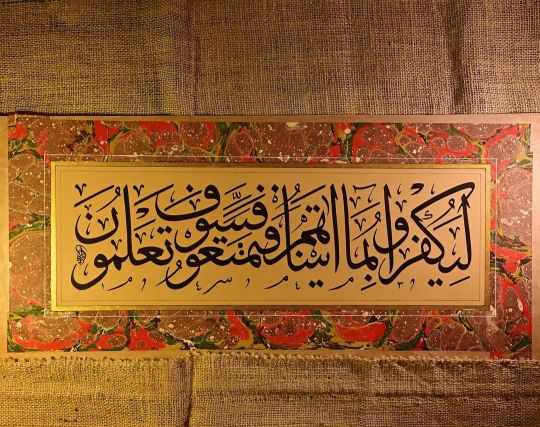 ليكفروا بما اتيناهم فتمتعوا فسوف تعلمون